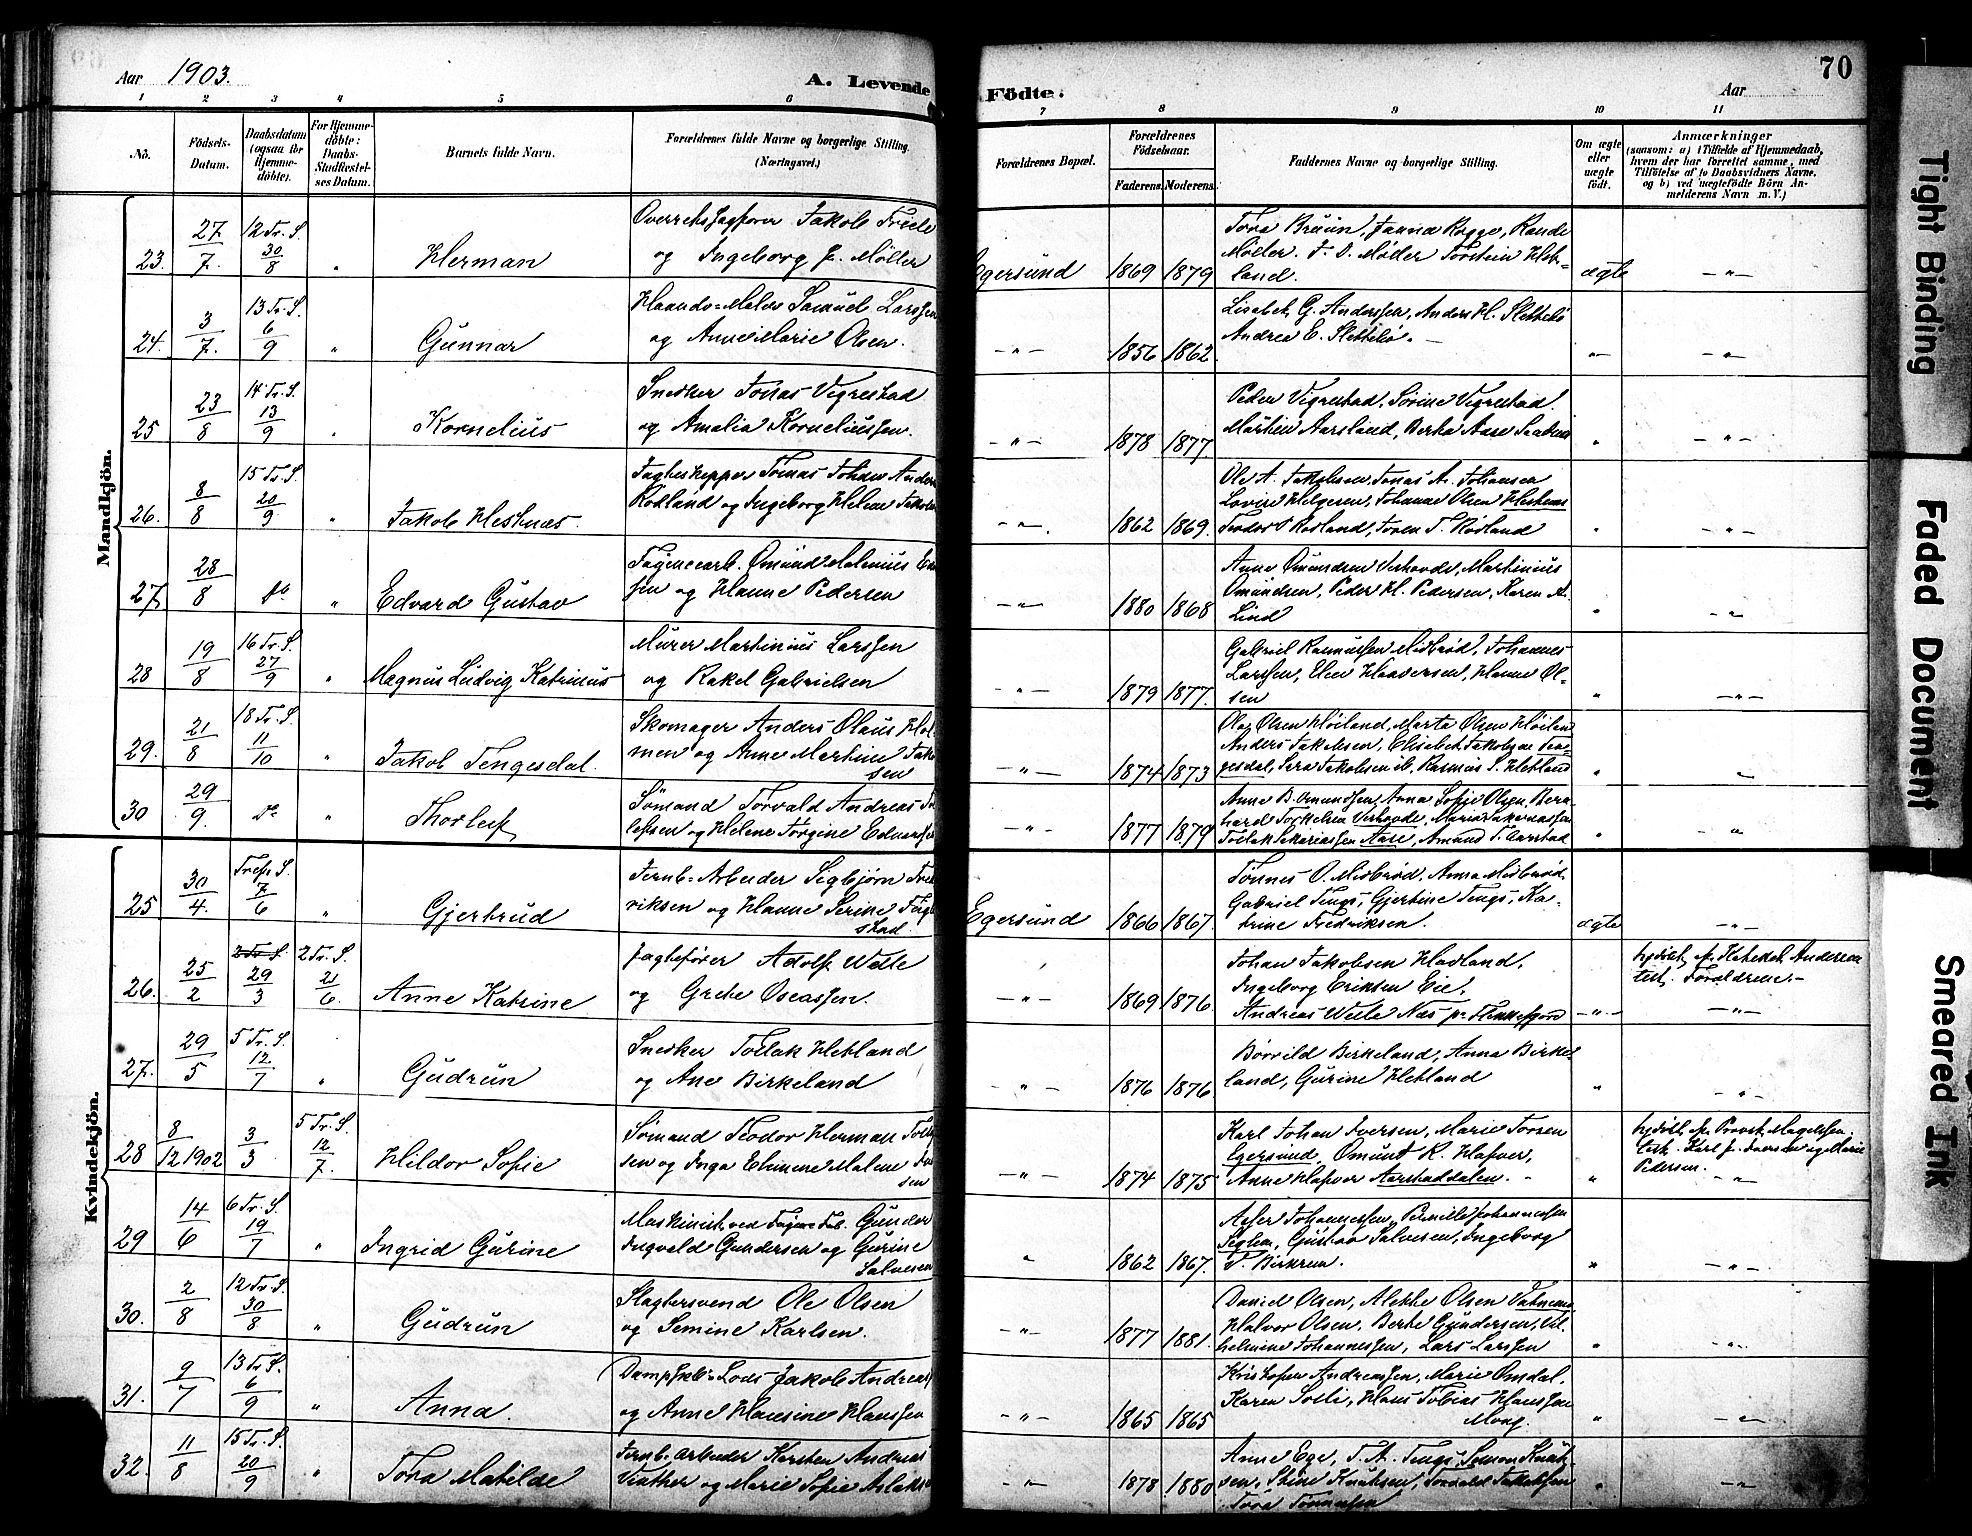 Aar 1903.
A. Levende
Födte.
Aar
70
1 2 3 4 5 6 7 8 9 10 11
No.
Födsels-Datum.
Daabsdatum (ogsaa for Hjemme-döbte).
For Hjemme-döbte: Daabs-Stadfæstel-ses Datum.
Barnets fulde Navn.
Forældrenes fulde Navne og borgerlige Stilling. (Næringsvei.)
Forældrenes Bopæl.
Forældrenes Födselsaar.
Faderens. Moderens.
Faddernes Navne og borgerlige Stilling.
Om ægte eller uægte født.
Anmærkninger
(saasom: a) i Tilfælde af Hjemmedaab, hvem der har forrettet samme, med Tilföielse af to Daabsvidners Navne, og b) ved uægtefödte Börn An-melderens Navn m. V.)
Mandkjön.
23. 27/7. 12 Tr. S. 30/8 " Herman
Overretssagfører Jakob Friele
og Ingeborg J. Møller
Egersund 1869 1879
Tora Bruun, Janna Rogge, Rande
Møller. F. D. Møller Torstein Heb-
land.
ægte -"-
24. 3/7. 13 Tr. S. 6/9 " Gunnar
Haandv=Maler Samuel Larssen
og Anne Marie Olsen.
-"- 1856 1862
Lisabet G. Anderssen, Anders H. Slettebö
Andrea E. Slettebö.
-"- -"-
25 23/8 14 Tr. S. 13/9 " Kornelius
Snedker Jonas Vigrestad
og Amalia Korneliussen.
-"- 1878 1877
Peder Vigrestad, Sörine Vigrestad.
Martin Aarsland, Berta Aase
" -"-
26. 8/8 15 Tr. S. 20/9 " Jakob Hesknæs.
Tomas Johan
Rödland og Ingeborg Helene
-"-. 1862 1869.
Ole A. Jakobsen, Jonas A. Johansen
Lovise Helgesen, Johanne Olsen Hesknæs
Teodor Rödland, Toren T. Rödland
" -"-
27 28/8 do " Edvard Gustav
Fayencearb. Omund Malenius
sen og Hanne Pedersen
-"- 1880 1868
Anne Omundsen Verhovde, Martinius
Omundsen, Peder H. Pedersen, Karen A.
Lind
" -"-
28 19/8 16 Tr. S. 27/9 " Magnus Ludvig Katrinus
Murer Martinius Larssen
og Rakel Gabrielsen
-"- 1879 1877.
Gabriel Rasmussen Midbröd, Johannes
Larssen, Elen Haaversen, Hanne Ol-
sen
" -"-
29. 21/8 18 Tr. S. 11/10 " Jakob Tengesdal.
Skomager Anders Olaus Hol-
men og Anne Martine Jako
sen
-"- 1874 1873
Olaf Olsen Höiland, Marta Olsen Höiland
Anders Jakobsen, Elisabet Jakobsen Ten-
gesdal, Sara Jakobsen ib, Rasmus S. Hetland
" -"-
30 29/9. Do " Thorleif
Sömand Torvald Andreas
lefsen og Helene Torgine
-"- 1877 1879
Anne B. Omundsen, Anna Sofie Olsen, Bern-
hard Torkelsen Verhovde, Maria Sakariassen
Torlak Sakariassen Aase, Amund T. Aarstad
" -"-
Kvindekjön.
25 30/4. Trefn. S. 7/6 " Gjertrud
Jernb=Arbeider Sigbjörn Fred
riksen og Hanne Serine
stad
Egersund 1866 1867
Tönnes O. Midbröd, Anna Midbröd,
Gabriel Tengs, Gjertine Tengs, Ka-
trine Fredriksen.
ægte -"-
26. 25/2 2 Tr. S. 29/3 2 Tr. S. 21/6. Anne Katrine
Jagtefører Adolf Welle
og Grete Oseassen.
-"- 1869 1876
Johan Jakobsen Hadland,
Ingeborg Eriksen Eie,
Andreas Welle Næs pr Flekkefjord
-"-
hjdöbt af Andersen
test. Forældrene.-
-"-
27. 29/5 5 Tr. S. 12/7 " Gudrun
Snedker Torlak Hetland
og Ane Birkeland
-"- 1876 1876
Börrild Birkeland, Anna Birke-
land, Gurine Hetland
" -"-
28 8/12 1902 3/3 5 Tr. S. 12/7. Hildor Sofie
Sömand Teodor Herman
sen og Inga Elminne Malene
sen
-"- 1874 1875
Karl Johan Iversen, Marie Torsen
Egersund, Omund R. Hafver,
Anne Hafver Aarstaddalen.
"
hjdöbt af Provst Magelssen.
test. Karl J. Iversen og Marie
Pedersen.
-"-
29 14/6 6 Tr. S. 19/7 " Ingrid Gurine
Maskinist ved Fayence Fab. Gunder
Ingvald Gundersen og Gurine
Salvesen
" 1862 1867.
Asser Johannessen, Pernille Johannessen
Seglem, Gustav Salvesen, Ingeborg
P. Birkrem.
" -"-
30. 2/8 12 Tr. S. 30/8 " Gudrun
Slagtersvend Ole Olsen
og Semine Karlsen.
-"- 1877 1881.
Daniel Olsen, Alette Olsen Vatnemo
Halvor Olsen, Berte Gundersen, Vil-
helmine Johannessen, Lars Larssen
" -"-
31. 9/7 13 Tr. S. 6/9 " Anna.
Dampsk.-Lods Jakob Andreas
og Anne Hansine Hanssen
-"- 1865 1865
Kristofer Andreassen, Marie Omdal,
Karen Solli, Hans Tobias Hanssen
Mong.
" -"-
32. 11/8 15 Tr. S. 20/9 " Tora Matilde
Jernb. Arbeider Karsten Andreas
og Marie Sofie Aslaks
-"- 1878 1880
Anne Ege, T. A. Tengs, Simon Knut-
sen, Stine Knutsen, Torvald Jakobsen
Tora Tönnesen
" -"-
Tight Binding
Faded Document
Smeared Ink